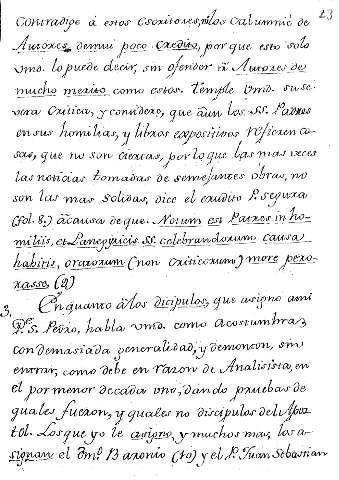 23
Contradige á estos Escritores, ni los Calumnié de
Autores de mui poco Credito, por que esto solo
Vmd. lo puede decir, sin ofender á Autores de
mucho merito como estos. Temple Vmd. su se-
vera Critica, y considere, que aun los SS. Padres
en sus homilias, y libros expositivos refieren co-
sas, que no son ciertas, por lo que las mas veces
las noticias tomadas de semejantes obras, no
son las mas solidas, dice el erudito P. Segura
(fol. 8.) á causa de que. Notum est Patres in ho-
miliis, et Panegyricis SS. celebrandorum causa
habitis, oratorum (non Criticorum) more pero-
rasse. (9)
3. En quanto á los dicipulos, que asigno a mi
P.e S. Pedro, habla Vmd. como acostumbra,
con demasiada generalidad, y de monton, sin
entrar, como debe en razon de Analisista, en
el por menor de cada uno, dando pruebas de
quales fueron, y quales no discipulos del Apos
tol. Los que yo le asigno, y muchos mas, los a-
signan el Em.º Baronio (10) y el P. Juan Sebastian